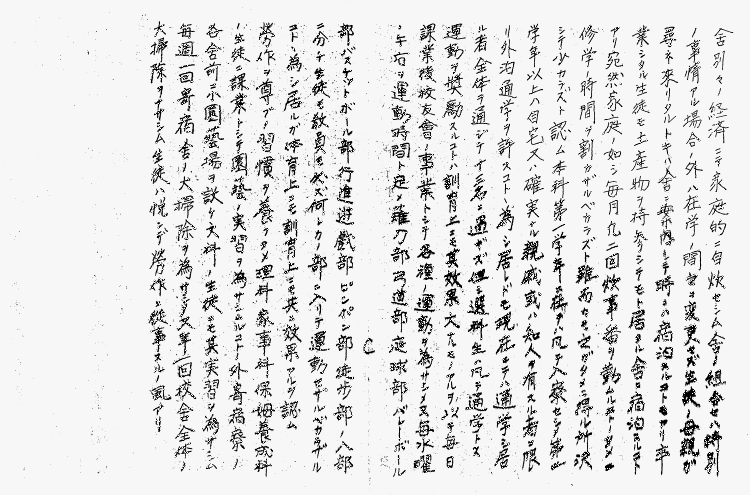 舎別々ノ経済ニテ家庭的ニ自炊セシム舎ノ組合セハ特別
ノ事情アル場合ノ外ハ在学ノ間ニ変更セズ生徒ノ母親ガ
尋ネ来リタルトキハ舎ニ案内シテ時ニハ宿泊セルコトモアリ卒
業シタル生徒モ土産物ヲ持参シテモト居タル舎ニ宿泊スルコト
アリ宛然家庭ノ如シ毎月凡二回炊事番ヲ勤ムルコトノタメニ
修学ノ時間ヲ割カザルベカラズト雖而カモ之ガタメニ得ル所決
シテ少カラズト認ム本科第一学年ニ在テハ凡テ入寮セシメ第二
学年以上ハ自宅又ハ確実ナル親戚或ハ知人ヲ有スル者ニ限
リ外泊通学ヲ許スコトヽ為シ居レドモ現在ニテハ通学シ居
ル者全体ヲ通ジテ十三名ニ過ギズ但シ選科生ハ凡テ通学トス
運動ヲ奨励スルコトハ訓育上ニモ其効果大ナルモノアルヲ以テ毎日
課業後校友会ノ事業トシテ各種ノ運動ヲ為サシメ又毎水曜
ノ午后ヲ運動時間ト定メ薙刀部弓道部庭球部バレーボール
部バスケットボール部行進遊戯部ピンポン部徒歩部ノ八部
ニ分チ生徒モ教員モ必ズ何レカノ部ニ入リテ運動セザルベカラザル
コトヽ為シ居ルガ体育上ニモ訓育上ニモ共ニ効果アルヲ認ム
労作ヲ尊ブノ習慣ヲ養フタメ理科家事科保姆養成科
ノ生徒ニ課業トシテ園芸ノ実習ヲ為サシムルコトノ外寄宿寮ノ
各舎前ニ小園藝場ヲ設ケ文科ノ生徒ニモ其実習ヲ為サシム
毎週一回寄宿舎ノ大掃除ヲ為サシメ又年一回校舎全体ノ
大掃除ヲナサシム生徒ハ悦ンデ労作ニ従事スルノ風アリ